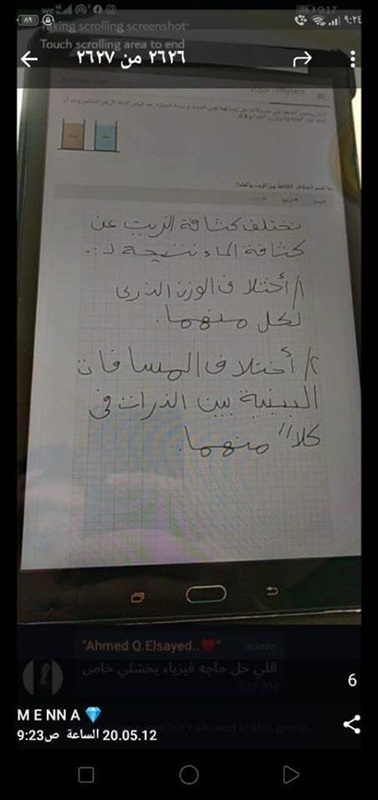 ٩:٢٤
٨٩
9:17
Taking scrolling screenshot
Touch scrolling area to end
٢٦٢٦ من ٢٦٢٧
تختلف كثافة الزيت عن
كثافة الماء نتيجة لـ :-
١/ أختلاف الوزن الذرى
لكل منهما.
٢/ أختلاف المسافات
البينية بين الذرات فى
كلاً منهما.
"Ahmed Q.Elsayed..❤"
admin
اللي حل حاجه فيزياء يخشلي خاص
6
M E NN A 💎
20.05.12 الساعة ص9:23